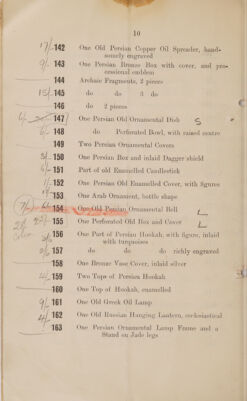 10
17/- 142 One Old Persian Copper Oil Spreader, hand-
somely engraved
9/- 143 One Persian Bronze Box with cover, and pro-
cessional emblem
144 Archaic Fragments, 2 pieces
15/- 145 do do 3 do
146 do 2 pieces
147 One Persian Old Ornamental Dish S
6/- 148 do Perforated Bowl, with raised centre
149 Two Persian Ornamental Covers
150 One Persian Box and inlaid Dagger shield
6/- 151 Part of old Enamelled Candlestick
1/- 152 One Persian Old Enamelled Cover, with figures
153 One Arab Ornament, bottle shape
154 One Old Persian Ornamental Bell L
155 One Perforated Old Box and Cover L
156 One Part of Persian Hookah, with figure, inlaid
with turquoises
157 do do do richly engraved
158 One Bronze Vase Cover, inlaid silver
159 Two Tops of Persian Hookah
160 One Top of Hookah, enamelled
9/- 161 One Old Greek Oil Lamp
4/- 162 One Old Russian Hanging Lantern, ecclesiastical
163 One Persian Ornamental Lamp Frame and a
Stand on Jade legs